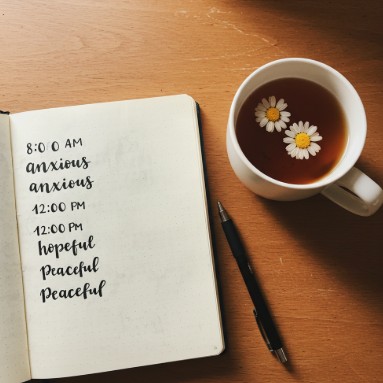 8:0 0 AM
anxious
anxious
12:00 PM
12:00 PM
hopeful
Peaceful
Peaceful